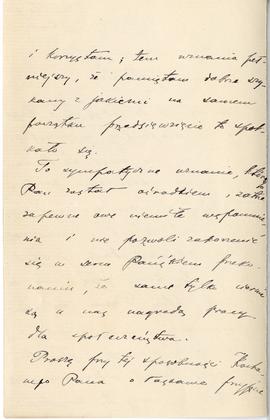 i korzystam; tem uznania peł
niejszy, że pamiętam dobrze szy
kany z jakiemi na samem
początku przedsięwzięcie to spot
kało się.
To sympatyczne uznanie, którego
Pan został ośrodkiem, zatrze
zapewne owe niemiłe wspomnie
nia i nie pozwoli zakorzenić
się w sercu Pańskiem przeko
naniu, że same tylko
są u nas nagrodą pracy
dla społeczeństwa.
Proszę przy tej sposobności Kocha
nego Pana o łaskawe przyjęcie